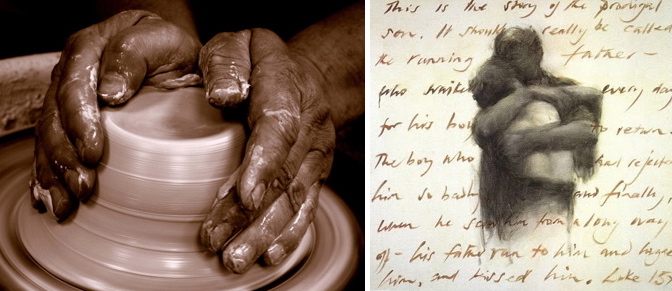 This is the story of the prodigal
son. It should really be called
the running father –
who waited every day
for his to return
The boy who had
him so badly and finally,
when he saw him from a long way
off – his father ran to him and
him, and kissed him. Luke 15